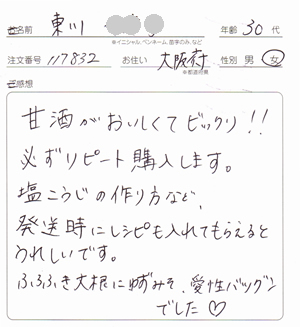 お名前 東川 年齢 30 代
※イニシャル、ペンネーム、苗字のみ、など
注文番号 117832 お住い 大阪府 性別 男 女
※都道府県
ご感想
甘酒がおいしくてビックリ!!
必ずリピート購入します。
塩こうじの作り方など、
発送時にレシピも入れてもらえると
うれしいです。
ふろふき大根にゆずみそ、愛性バツグン
でした♡